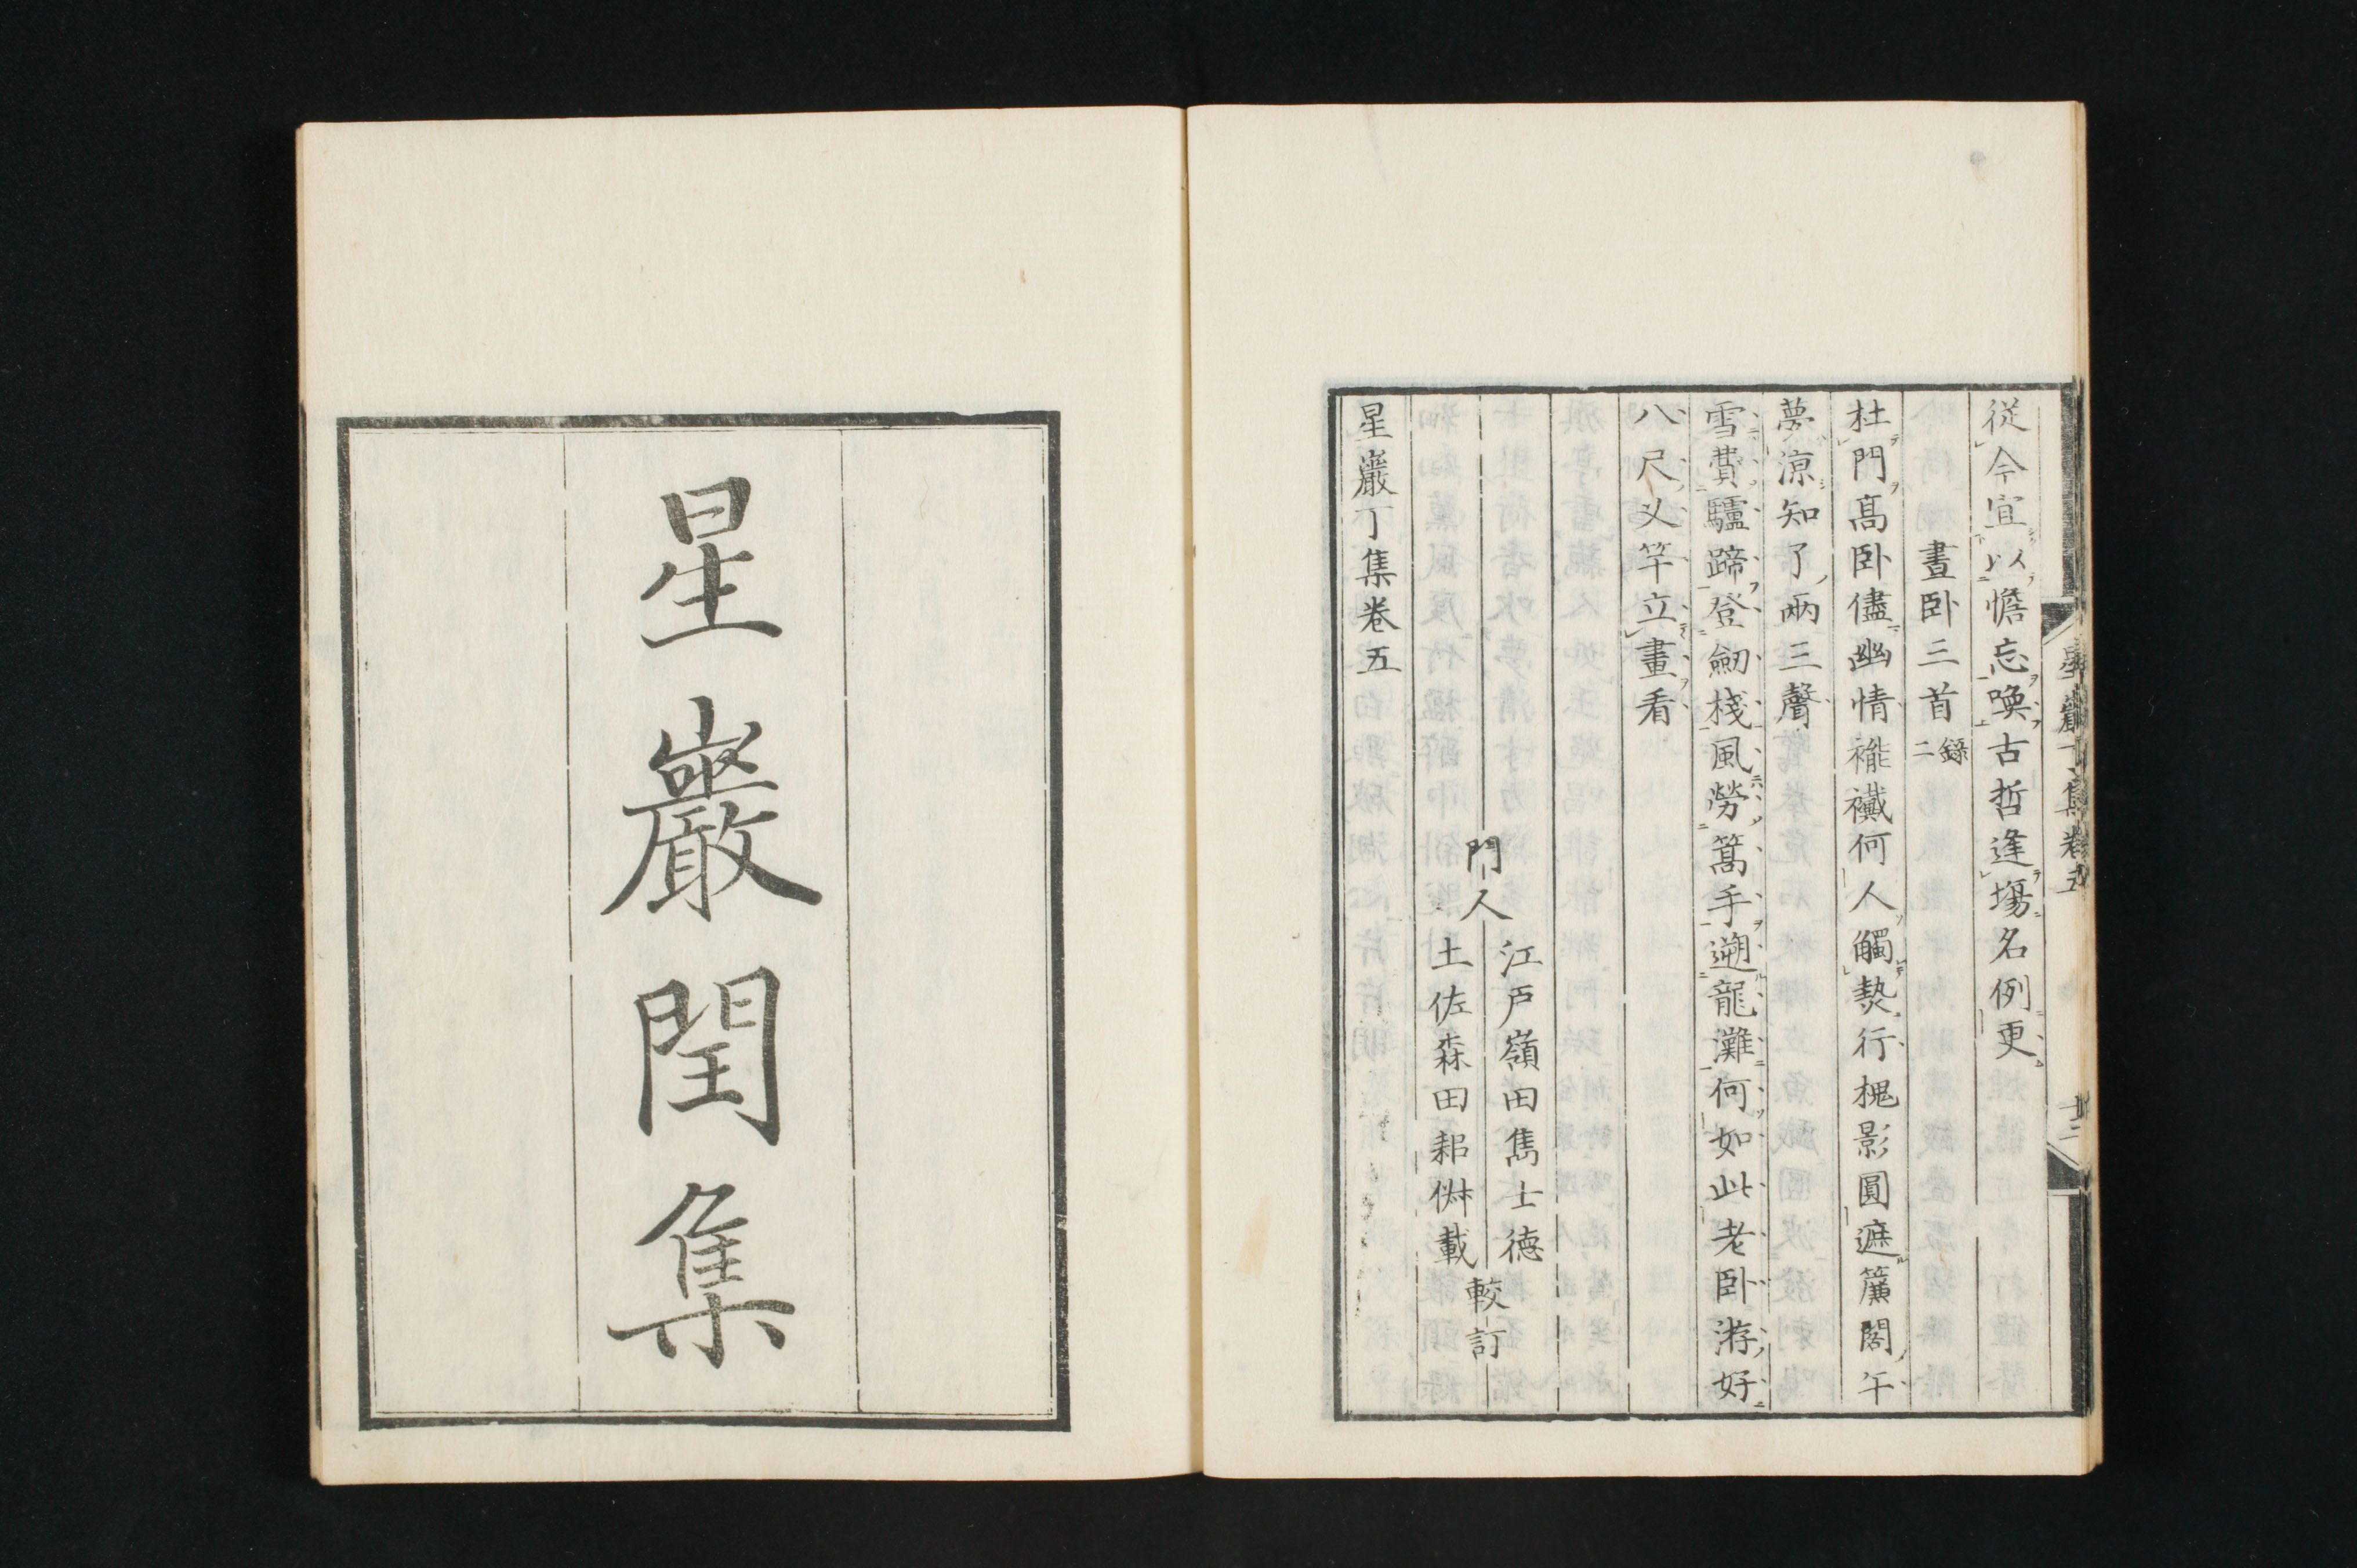 從今宜以憺忘喚古哲逢場名例更
晝臥三首錄二
杜門高臥儘幽情褦襶何人觸熱行槐影圓遮簾閣午
夢涼知了兩三聲
雪費驢蹄登劒棧風勞篙手遡龍灘何如此老臥游好
八尺乂竿立畫看
門人
江戶嶺田雋士德
土佐森田耜俶載
較訂
星巖丁集卷五
星巖丁集卷五
星巖閏集